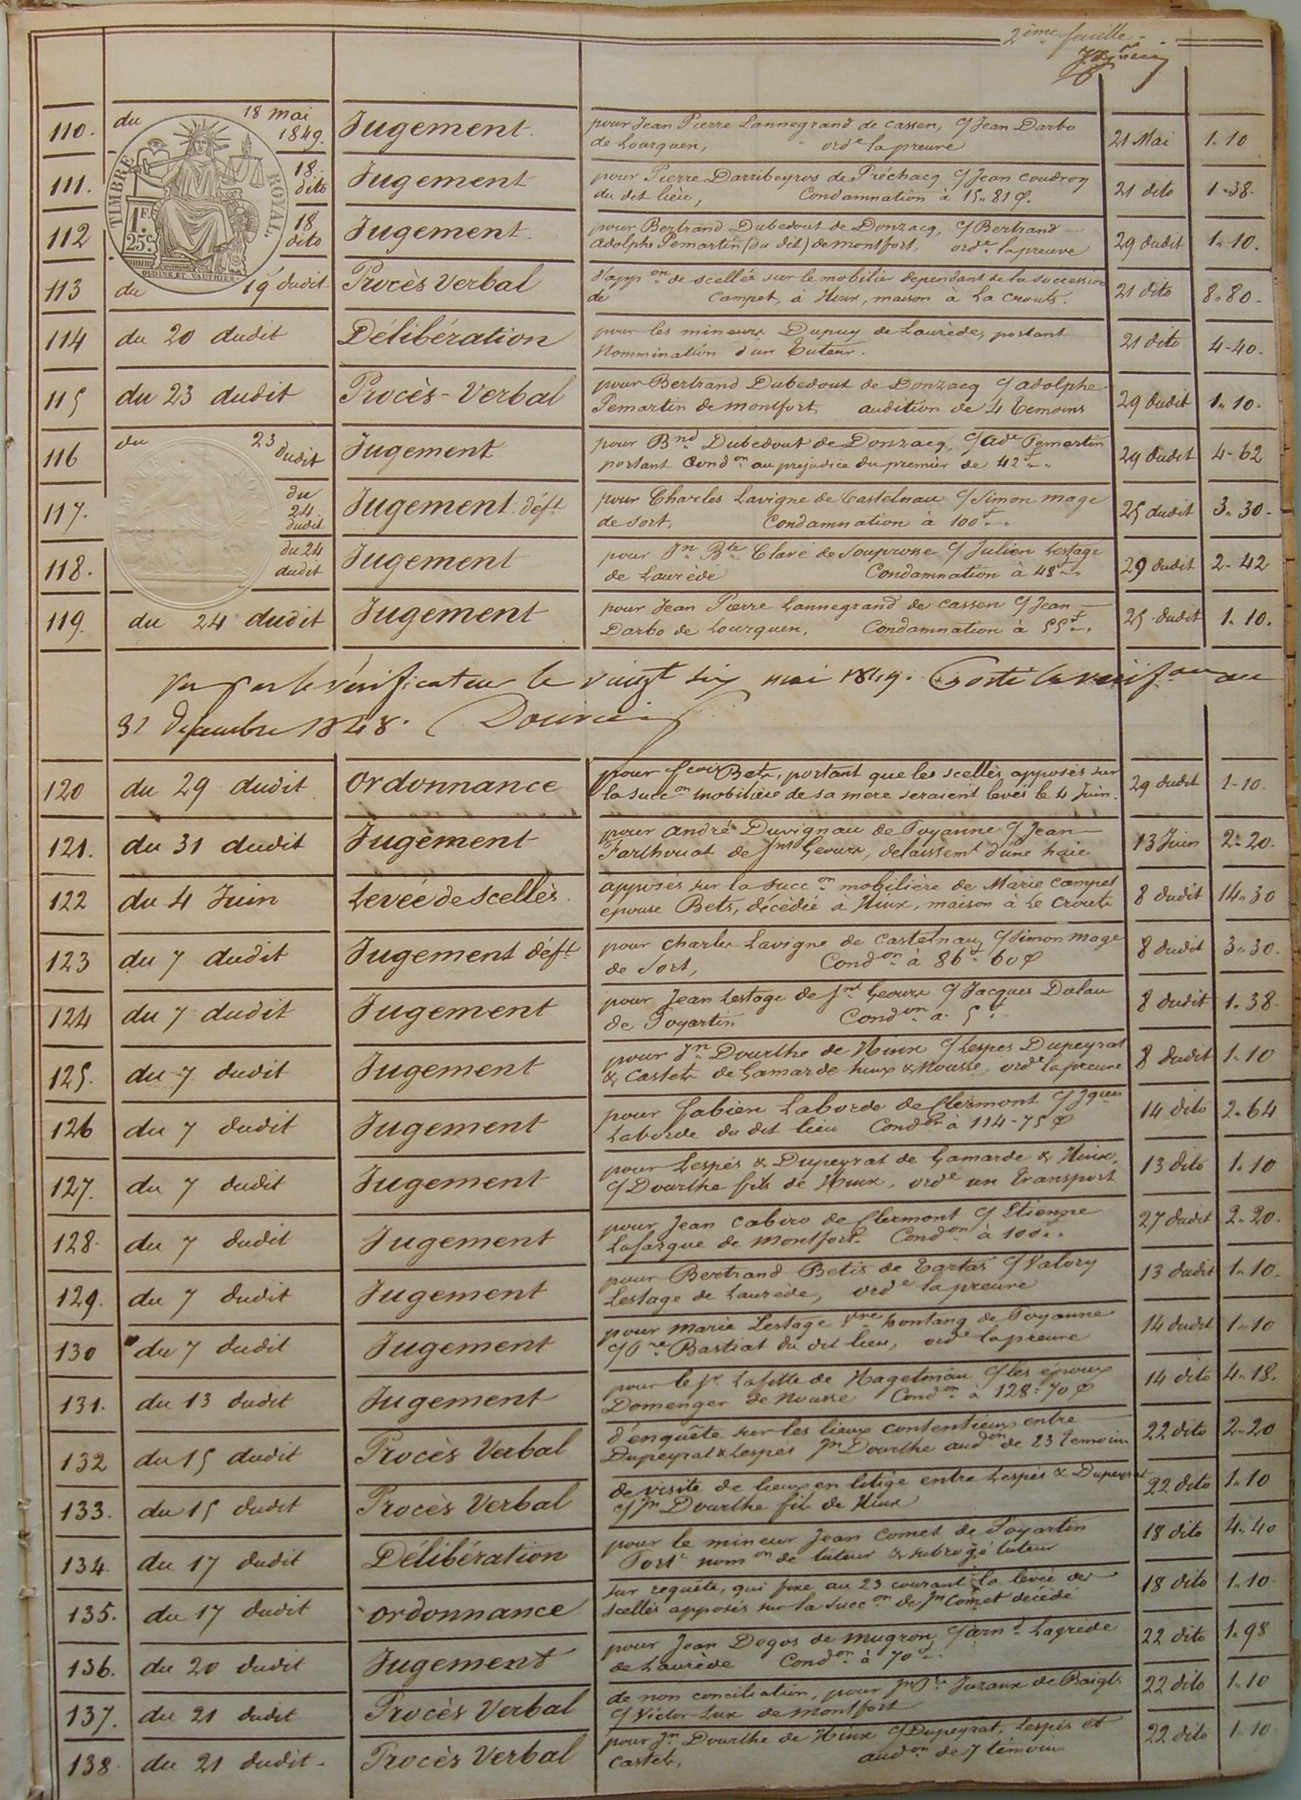 2ème feuille
110. du 18 mai 1849. Jugement. pour Jean Pierre Lannegrand de Cassen, C/ Jean Darbo 21 Mai 1-10
de Lourquen, ordne la preuve
TIMBRE ROYAL.
1F. 25c.
111. 18 dito Jugement pour Pierre Darribeyros de Préchacq C/ Jean Coudroy 21 dito 1-38.
du dit lieu, Condamnation à 15. 81 ¢.
112 18 dito Jugement. pour Bertrand Dubedout de Donzacq, C/ Bertrand 29 dudit 1.-10.
Adolphe Pemartin (du dit) de montfort, ordne la preuve
113 du 19 dudit Procès Verbal d'appon de scellés sur le mobilier dependant de la succession 21 dito 8.80.
de Campet, à Hinx, maison à La Croute.
114 du 20 dudit Délibération pour les mineurs Dupuy de Laurède, portant 21 dito 4-40.
Nommination d'un Tuteur.
115 du 23 dudit Procès-Verbal pour Bertrand Dubedout de Donzacq C/ adolphe 29 dudit 1.10.
Pemartin de montfort, audition de 4 temoins
116 du 23 dudit Jugement pour Bnd Dubedout de Donzacq, C/ Ade Pemartin 29 dudit 4-62
portant Condon au prejudice du premier de 42f
117. du 24 dudit Jugement déft pour Charles Lavigne de Castelnau C/ Simon Mage 25 dudit 3.30.
de Sort, Condamnation à 100f
118. du 24 dudit Jugement pour Jn Bte Claré de Souprosse C/ Julien Lestage 29 dudit 2-42
de Laurède Condamnation à 48f
119. du 24 dudit Jugement pour Jean Pierre Lannegrand de Cassen C/ Jean 25 dudit 1. 10.
Darbo de Lourquen, Condamnation à 55f
Vu par le vérificateur le vingt six mai 1849. Porté la verifon au
31 decembre 1848.
120 du 29 dudit Ordonnance pour Betz, portant que les scellés apposés sur 29 dudit 1-10.
la succon mobilière de sa mere seraient levés le 4 Juin.
121. du 31 dudit Jugement pour André Duvignau de Poyanne C/ Jean 13 Juin 2-20.
Farthouat de Jnt Geours, delaissemt d'une haie
122 du 4 Juin Levée de scellés. apposés sur la succon mobilière de Marie Campet 8 dudit 14.30
epouse Bets, décèdée à Hinx, maison à Le Croute
123 du 7 dudit Jugement déft pour Charles Lavigne de Castelnau C/ Simon Mage 8 dudit 3.30.
de Sort, Condon à 86f 60¢
124 du 7 dudit Jugement pour Jean Lestage de Jnt Geours C/ Jacques Dulau 8 dudit 1.38.
de Poyartin Condon à 5f
125. du 7 dudit Jugement pour Jn Dourthe de Hinx C/ Lespes Dupeyrat 8 dudit 1.10
& Castets de Gamarde hinx & Nousse, ordne la preuve
126 du 7 dudit Jugement pour Fabien Laborde de Clermont C/ Jques 14 dito 2.64
Laborde du dit lieu Condon à 114-75¢
127. du 7 dudit Jugement pour Lespés & Dupeyrat de Gamarde & Hinx, 13 dito 1.10
C/ Dourthe fils de Hinx, ordne un transport
128. du 7 dudit Jugement pour Jean Cabiro de Clermont C/ Etienne 27 dudit 2.20.
Lafargue de Montfort. Condon à 100f
129. du 7 dudit Jugement pour Bertrand Betis de Tartas C/ Valery 13 dudit 1.10.
Lestage de Laurède, ordne la preuve
130 du 7 dudit Jugement pour Marie Lestage vve hontang de Poyanne 14 dudit 1.10
C/ Bastiat du dit lieu, ordne la preuve
131. du 13 dudit Jugement pour le Sr Lafitte de Hagetmau C/ les époux 14 dito 4.18.
Domenger de Nousse Condon à 128-70¢
132 du 15 dudit Procès Verbal d'enquête sur les lieux contentieux entre 22 dito 2.20
Dupeyrat & Lespés Jn Dourthe audon de 23 temoins
133. du 15 dudit Procès Verbal de visite de lieux en litige entre Lespés & Dupeyrat 22 dito 1.10
C/ Jn Dourthe fils de Hinx
134 du 17 dudit Délibération pour le mineur Jean Comet de Poyartin 18 dito 4.40
Portt nomon de tuteur & subrogé tuteur
135. du 17 dudit Ordonnance sur requête, qui fixe au 23 courant la levée des 18 dito 1.10
scellés apposés sur la succon de Jn Comet décédé
136. du 20 dudit Jugement pour Jean Degos de Mugron C/ Arnd Lagrède 22 dito 1.98
de Laurède Condon à 70f
137. du 21 dudit Procès Verbal de non conciliation, pour Jn Juzanx de Baigts 22 dito 1.10
C/ Victor Lux de Montfort
138. du 21 dudit. Procès Verbal pour Jn Dourthe de Hinx C/ Dupeyrat, Lespés et 22 dito 1.10
Castets, audon de 7 témoins